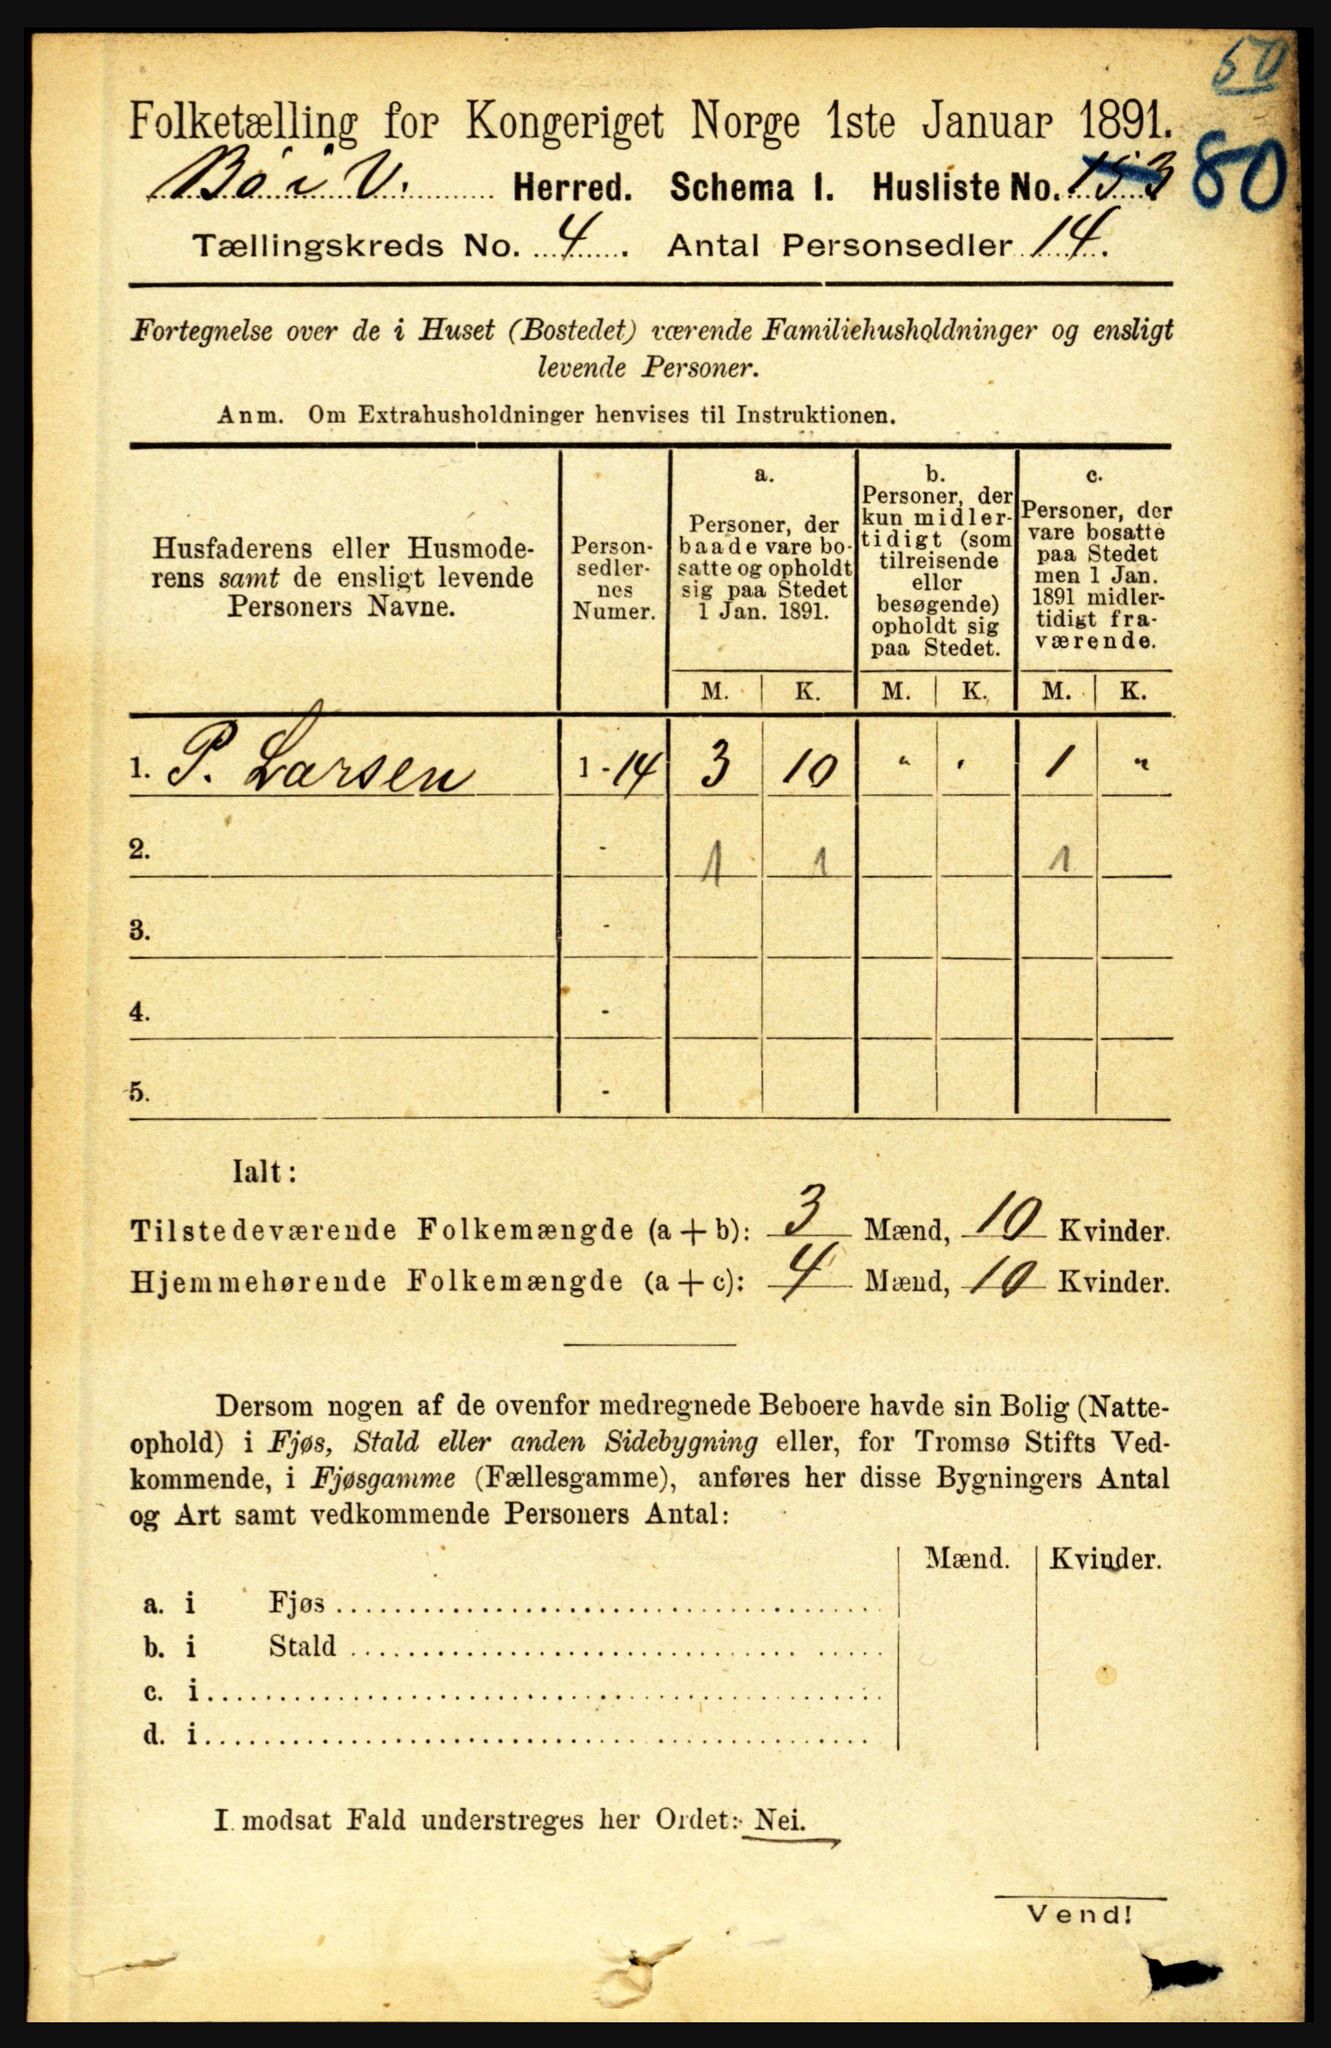 50
Folketælling for Kongeriget Norge 1ste Januar 1891.
Bö i V. Herred. Schema I. Husliste No. 153 80
Tællingskreds No. 4. Antal Personsedler 14.
Fortegnelse over de i Huset (Bostedet) værende Familiehusholdninger og ensligt
levende Personer.
Anm. Om Extrahusholdninger henvises til Instruktionen.
Husfaderens eller Husmode-
rens samt de ensligt levende
Personers Navne.
Person-
sedler-
nes
Numer.
a.
Personer, der
baade vare bo-
satte og opholdt
sig paa Stedet
1 Jan. 1891.
b.
Personer, der
kun midler-
tidigt (som
tilreisende
eller
besøgende)
opholdt sig
paa Stedet.
c.
Personer, der
vare bosatte
paa Stedet
men 1 Jan.
1891 midler-
tidigt fra-
værende.
M. K. M. K. M. K.
1. P. Larsen 1 - 14 3 10 " " 1 "
2. - 1 1 1
3. -
4. -
5. -
Ialt:
Tilstedeværende Folkemængde (a + b): 3 Mænd, 10 Kvinder.
Hjemmehørende Folkemængde (a + c): 4 Mænd, 10 Kvinder.
Dersom nogen af de ovenfor medregnede Beboere havde sin Bolig (Natte-
ophold) i Fjøs, Stald eller anden Sidebygning eller, for Tromsø Stifts Ved-
kommende, i Fjøsgamme (Fællesgamme), anføres her disse Bygningers Antal
og Art samt vedkommende Personers Antal:
Mænd. Kvinder.
a. i Fjøs
b. i Stald
c. i
d. i
I modsat Fald understreges her Ordet: Nei.
Vend!